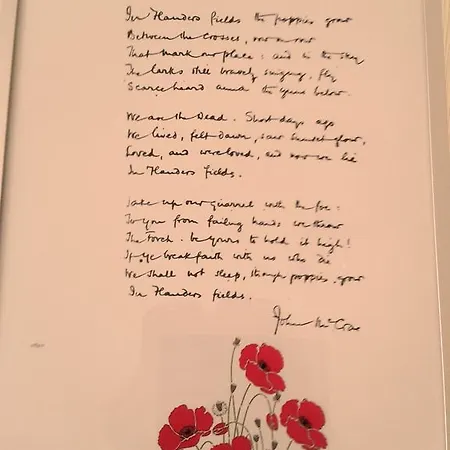 In Flanders fields the poppies grow
Between the crosses, row on row
That mark our place: and in the sky
The larks still bravely singing, fly
Scarce heard amid the guns below.
We are the Dead. Short days ago
We lived, felt dawn, saw sunset glow,
Loved, and were loved, and now we lie
In Flanders fields.
Take up our quarrel with the foe:
To you from failing hands we throw
The Torch. be yours to hold it high!
If ye break faith with us who die
We shall not sleep, though poppies grow
In Flanders fields.
John McCrae